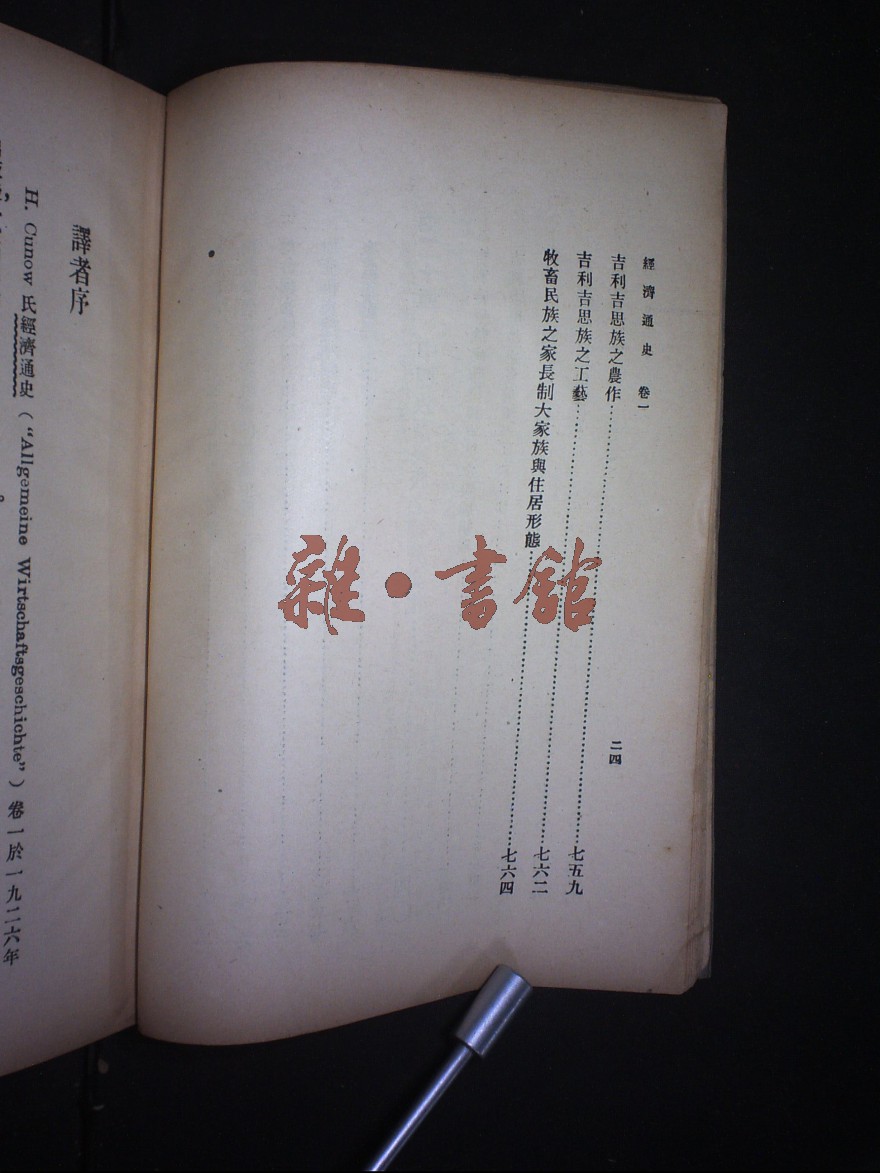 經濟通史 卷一
二四
吉利吉思族之農作……七五九
吉利吉思族之工藝……七六二
牧畜民族之家長制大家族與住居形態……七六四
雜·書館
譯者序
H. Cunow 氏經濟通史（“Allgemeine Wirtschaftsgeschichte”）卷一於一九二六年